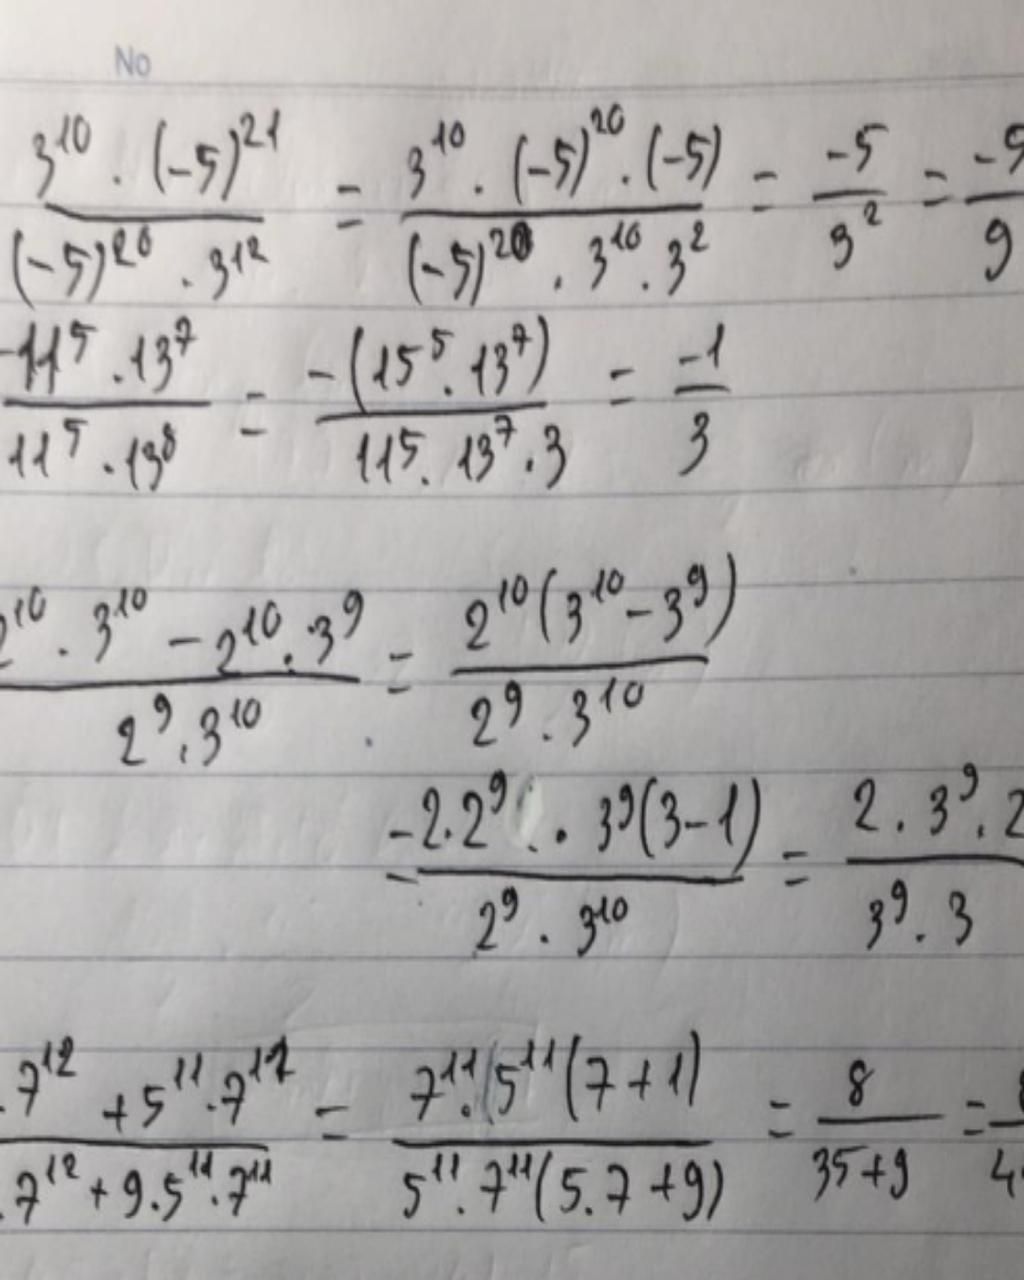 No
3^10 . (-5)^21 / (-5)^20 . 3^12 = 3^10 . (-5)^20 . (-5) / (-5)^20 . 3^10 . 3^2 = -5 / 3^2 = -5 / 9
-11^5 . 13^7 / 11^5 . 13^8 = -(15^5 . 13^7) / 11^5 . 13^7 . 3 = -1 / 3
2^10 . 3^10 - 2^10 . 3^9 / 2^9 . 3^10 = 2^10 (3^10 - 3^9) / 2^9 . 3^10
= 2 . 2^9 . 3^9 (3 - 1) / 2^9 . 3^10 = 2 . 3^9 . 2 / 3^9 . 3
. 7^12 + 5^11 . 7^11 / . 7^12 + 9 . 5^11 . 7^11 = 7^11 . 5^11 (7 + 1) / 5^11 . 7^11 (5 . 7 + 9) = 8 / 35 + 9 =